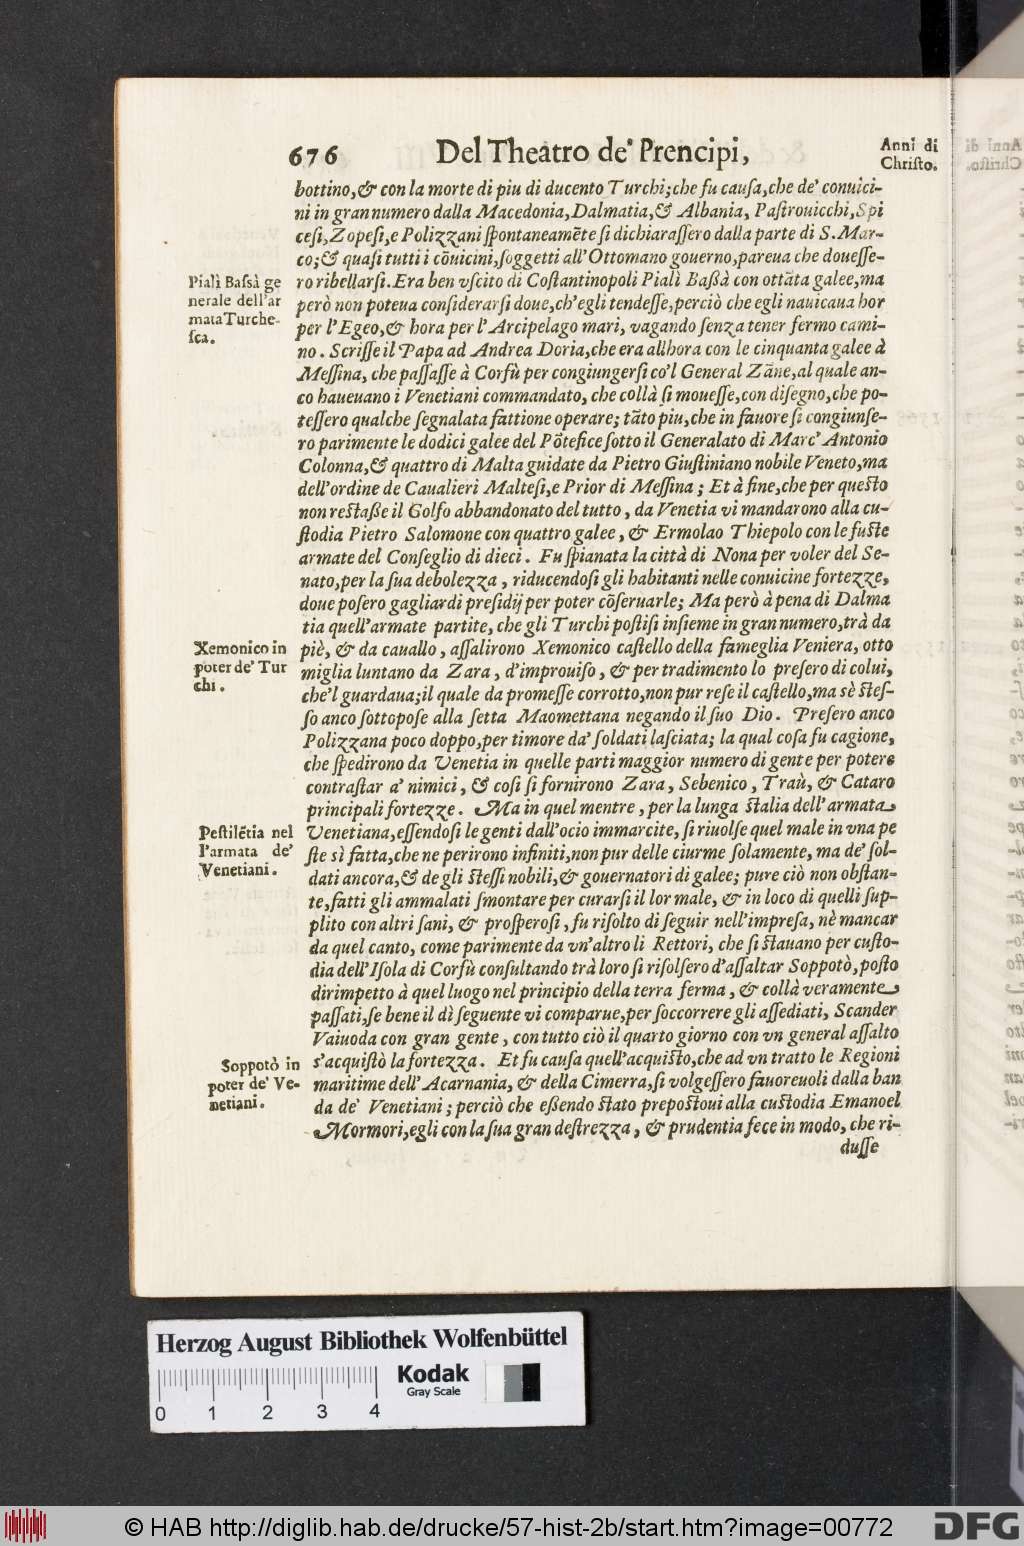 676 Del Theatro de' Prencipi,
Anni di
Christo.
bottino, & con la morte di piu di ducento Turchi; che fu cauſa, che de' conuici-
ni in gran numero dalla Macedonia, Dalmatia, & Albania, Paſtrouicchi, Spi
ceſi, Zopeſi, e Polizzani ſpontaneamẽte ſi dichiaraſſero dalla parte di S. Mar-
co; & quaſi tutti i cõuicini, ſoggetti all'Ottomano gouerno, pareua che doueſſe-
ro ribellarſi. Era ben vſcito di Coſtantinopoli Pialì Baßà con ottãta galee, ma
però non poteua conſiderarſi doue, ch'egli tendeſſe, perciò che egli nauicaua hor
per l'Egeo, & hora per l'Arcipelago mari, vagando ſenza tener fermo cami-
no. Scriſſe il Papa ad Andrea Doria, che era allhora con le cinquanta galee à
Meſſina, che paſſaſſe à Corfù per congiungerſi co'l General Zãne, al quale an-
co haueuano i Venetiani commandato, che collà ſi moueſſe, con diſegno, che po-
teſſero qualche ſegnalata fattione operare; tãto piu, che in fauore ſi congiunſe-
ro parimente le dodici galee del Põtefice ſotto il Generalato di Marc'Antonio
Colonna, & quattro di Malta guidate da Pietro Giuſtiniano nobile Veneto, ma
dell'ordine de Caualieri Malteſi, e Prior di Meſſina; Et à fine, che per queſto
non reſtaße il Golfo abbandonato del tutto, da Venetia vi mandarono alla cu-
ſtodia Pietro Salomone con quattro galee, & Ermolao Thiepolo con le fuſte
armate del Conſeglio di dieci. Fu ſpianata la città di Nona per voler del Se-
nato, per la ſua debolezza, riducendoſi gli habitanti nelle conuicine fortezze,
doue poſero gagliardi preſidij per poter cõſeruarle; Ma però à pena di Dalma
tia quell'armate partite, che gli Turchi poſtiſi inſieme in gran numero, trà da
piè, & da cauallo, aſſalirono Xemonico caſtello della fameglia Veniera, otto
miglia luntano da Zara, d'improuiſo, & per tradimento lo preſero di colui,
che'l guardaua; il quale da promeſſe corrotto, non pur reſe il caſtello, ma sè ſteſ-
ſo anco ſottopoſe alla ſetta Maomettana negando il ſuo Dio. Preſero anco
Polizzana poco doppo, per timore da' ſoldati laſciata; la qual coſa fu cagione,
che ſpedirono da Venetia in quelle parti maggior numero di gente per potere
contraſtar a' nimici, & coſi ſi fornirono Zara, Sebenico, Traù, & Cataro
principali fortezze. Ma in quel mentre, per la lunga ſtalia dell'armata
Venetiana, eſſendoſi le genti dall'ocio immarcite, ſi riuolſe quel male in vna pe
ſte sì fatta, che ne perirono infiniti, non pur delle ciurme ſolamente, ma de' ſol-
dati ancora, & de gli ſteſſi nobili, & gouernatori di galee; pure ciò non obſtan-
te, fatti gli ammalati ſmontare per curarſi il lor male, & in loco di quelli ſup-
plito con altri ſani, & proſperoſi, fu riſolto di ſeguir nell'impreſa, nè mancar
da quel canto, come parimente da vn'altro li Rettori, che ſi ſtauano per cuſto-
dia dell'Iſola di Corfù conſultando trà loro ſi riſolſero d'aſſaltar Soppotò, poſto
dirimpetto à quel luogo nel principio della terra ferma, & collà veramente
paſſati, ſe bene il dì ſeguente vi comparue, per ſoccorrere gli aſſediati, Scander
Vaiuoda con gran gente, con tutto ciò il quarto giorno con vn general aſſalto
s'acquiſtò la fortezza. Et fu cauſa quell'acquiſto, che ad vn tratto le Regioni
maritime dell'Acarnania, & della Cimerra, ſi volgeſſero fauoreuoli dalla ban
da de' Venetiani; perciò che eßendo ſtato prepoſtoui alla cuſtodia Emanoel
Mormori, egli con la ſua gran deſtrezza, & prudentia fece in modo, che ri-
duſſe
Pialì Baſsà ge
nerale dell'ar
mata Turche-
ſca.
Xemonico in
poter de' Tur
chi.
Peſtilẽtia nel
l'armata de'
Venetiani.
Soppotò in
poter de' Ve-
netiani.
Herzog August Bibliothek Wolfenbüttel
Kodak
Gray Scale
0 1 2 3 4
© HAB http://diglib.hab.de/drucke/57-hist-2b/start.htm?image=00772
DFG